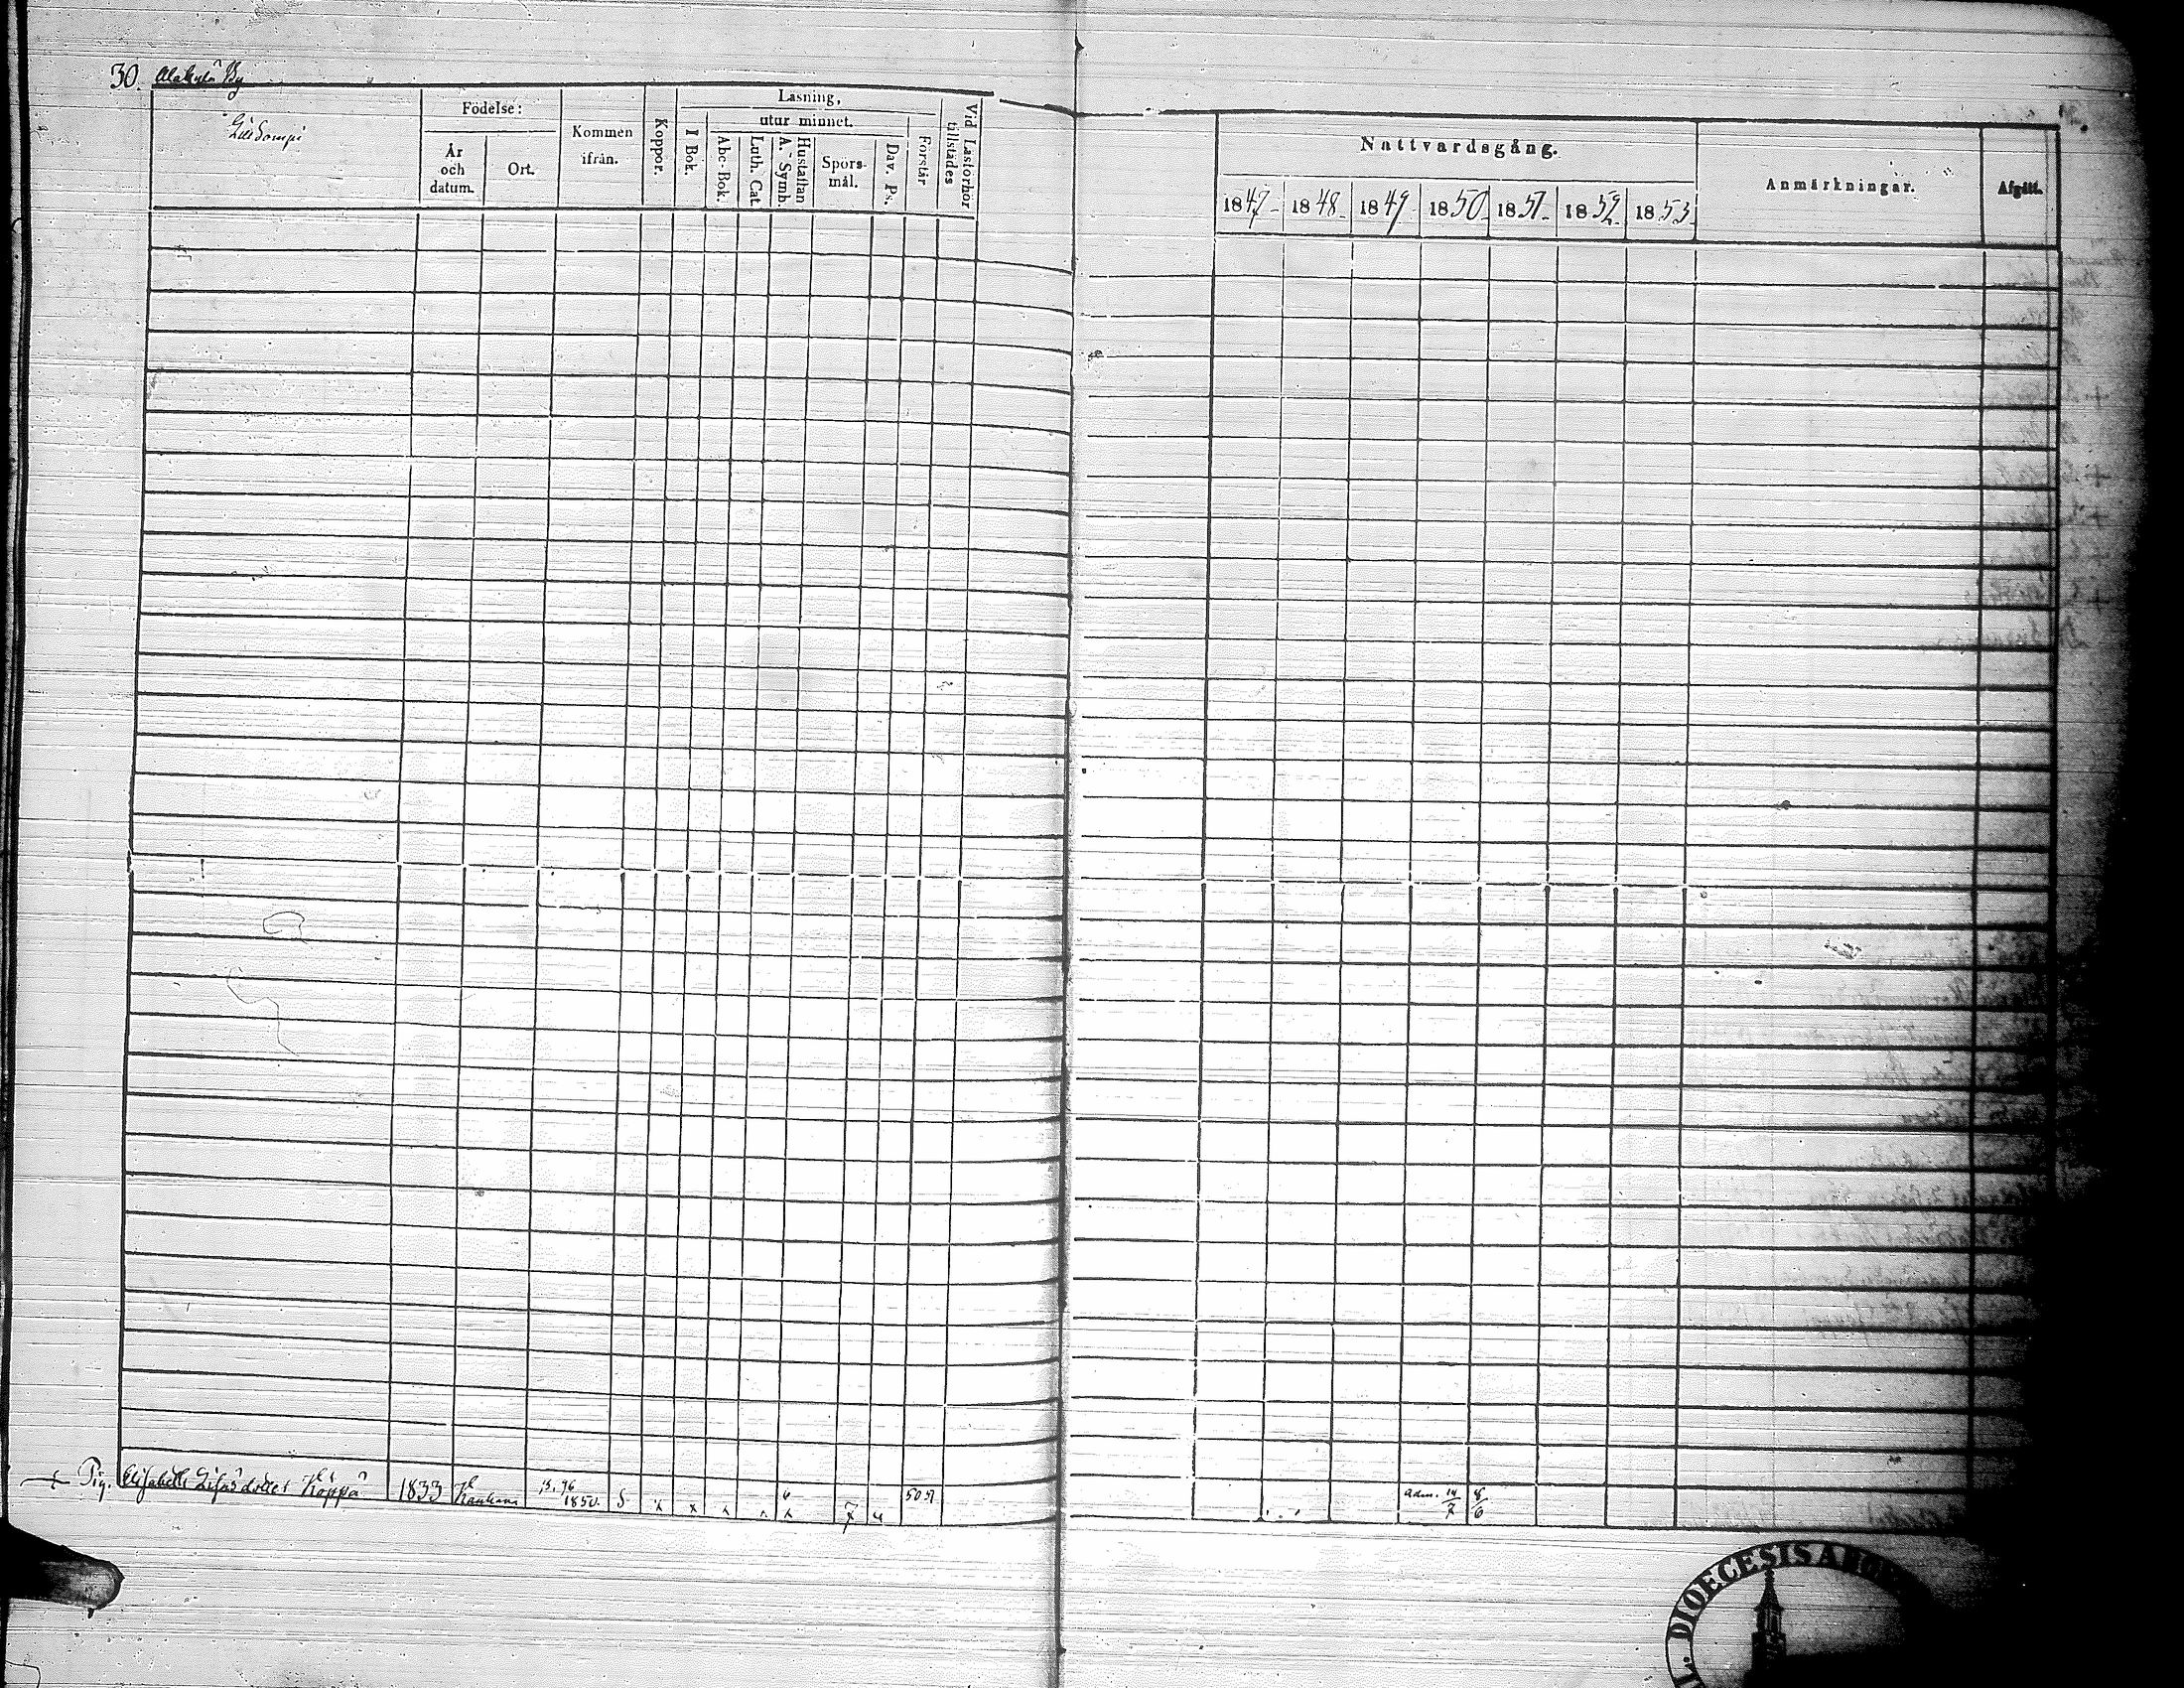 30. Alakylä By
Födelse:
År
och
datum.
Ort.
Kommen
ifrån.
Koppor.
Läsning,
I Bok.
utur minnet.
Abc-Bok.
Luth. Cat.
Hustaflan
A.-Symb.
Spörs-
mål.
Dav. Ps.
Förstår
Vid Läsförhör
tillstädes
Nattvardsgång.
1847
1848
1849
1850
1851
1852
1853
Anmärkningar.
Afgått.
Pig. Elisabeth Köppä 1833 Kauhava 1850. 50 51 adm. 14/7 8/6
DIOECESIS